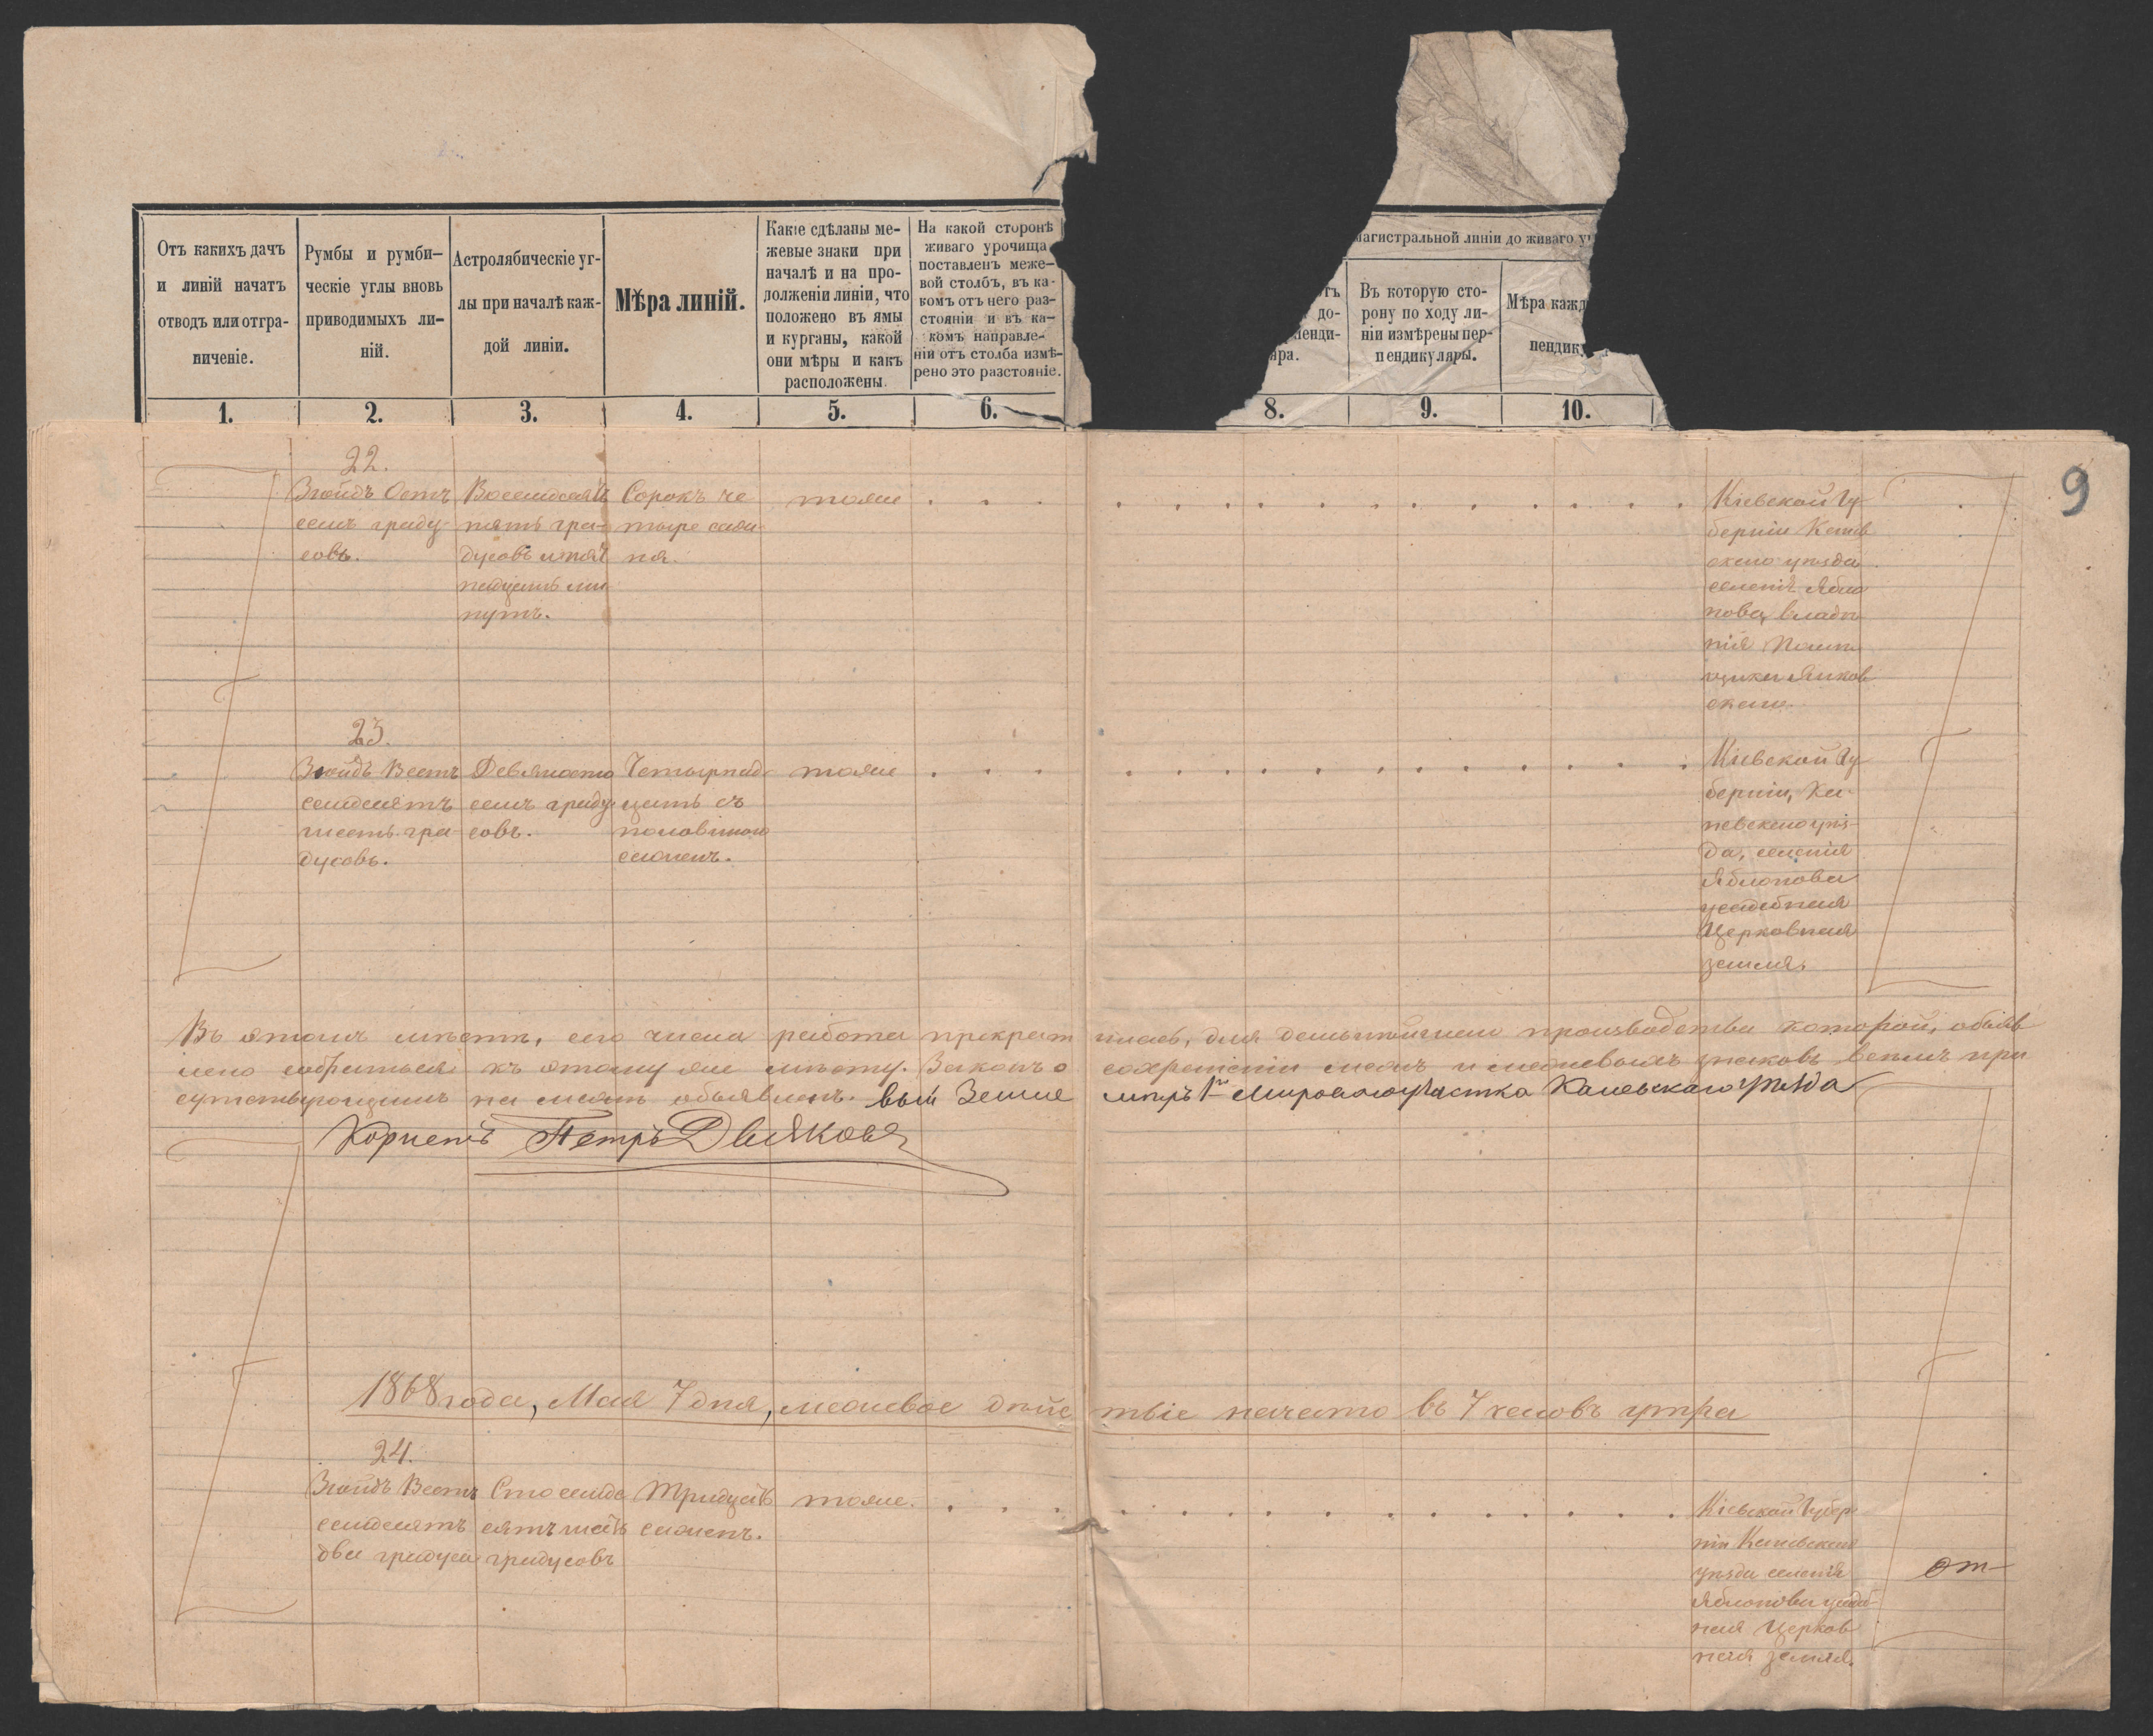 Отъ какихъ дачъ
и линій начатъ
отводъ или отгра-
ниченіе.
Румбы и румби-
ческіе углы вновь
приводимыхъ ли-
ній.
Астролябическіе уг-
лы при началѣ каж-
дой линіи.
Мѣра линій.
Какіе сдѣланы ме-
жевые знаки при
началѣ и на про-
долженіи линіи, что
положено въ ямы
и курганы, какой
они мѣры и какъ
расположены.
На какой сторонѣ
живаго урочища
поставленъ меже-
вой столбъ, въ ка-
комъ отъ него раз-
стояніи и въ ка-
комъ направле-
ніи отъ столба измѣ-
рено это разстояніе.
магистральной линіи до живаго
до-
пенди-
яра.
Въ которую сто-
рону по ходу ли-
ніи измѣрены пер-
пендикуляры.
Мѣра кажд
пендик
1. 2. 3. 4. 5. 6. 8. 9. 10.
9
22.
Зюйдъ Остъ
семь граду-
совъ.
Восемдесятъ
пять гра-
дусовъ и пят
надцать ми
нутъ.
Сорокъ че
тыре саже
ня.
тоже
Кіевской Гу-
берніи Канев
скаго уѣзда
селенія Ябло
нова, владѣ
нія Помѣ
щика Янков
скаго.
23.
Зюйдъ Вестъ
семдесятъ
шесть гра-
дусовъ.
Девяносто
семь граду-
совъ.
Четырнад-
цать съ
половиною
сажень.
тоже
Кіевской Гу-
берніи, Ка-
невскаго уѣз-
да, селенія
Яблонова
усадебная
Церковная
земля.
Въ этомъ мѣстѣ, сего числа работа прекрати лась, для дальнѣйшаго производства которой, объяв
лено собраться къ этому же мѣсту. Законъ о сохраненіи межъ и межевыхъ знаковъ всѣмъ при
сутствующимъ на межѣ объявленъ. вый Земле мѣръ 1го Мироваго участка Каневскаго уѣзда
Корнетъ Петръ Дьяковъ
1868 года, Мая 7 дня, межевое дѣйс твіе начато въ 7 часовъ утра
24.
Зюйдъ Вестъ
семдесятъ
два градуса
Сто семьде
сятъ шесть
градусовъ
Тридцать
сажень.
тоже.
Кіевской Губер
ніи Каневскаго
уѣзда селенія
Яблонова усадеб-
ная Церков
ная земля.
от-